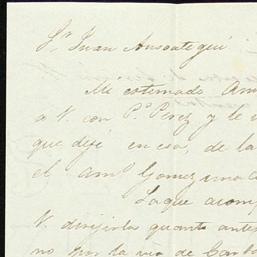 Sr. Juan Ansoategui
Mi estimado Am
a V. con Po. Perez y le
que dejé en esa, de la
el amo. Gomez una
La que acom
V. dirijirla quanto ante
no por la via de